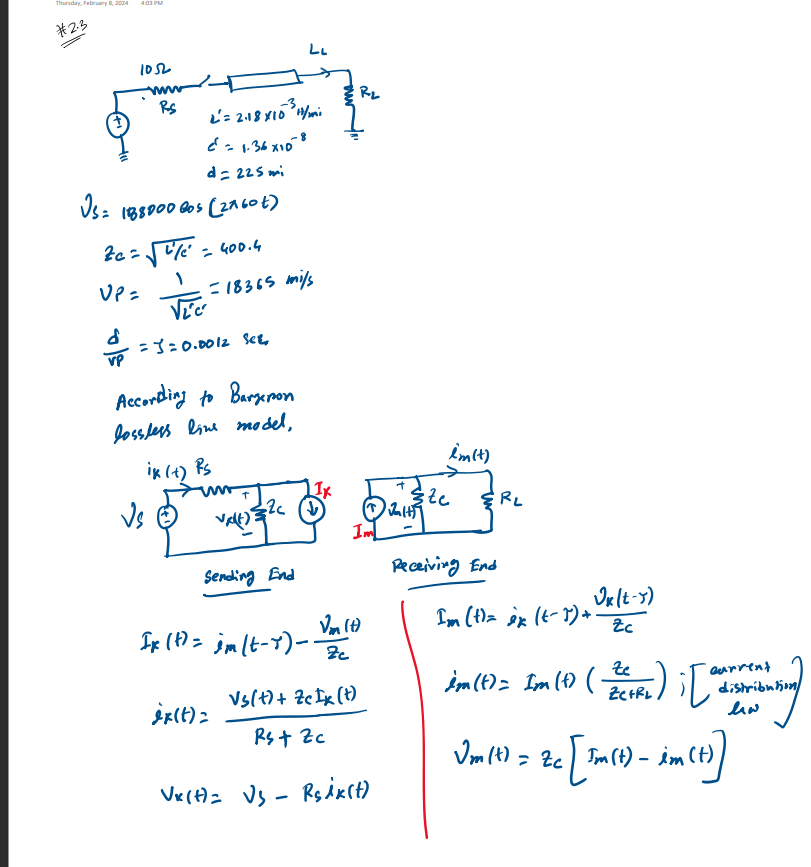 Thursday, February 8, 2024 4:03 PM
#2.3
10Ω
Rs
LL
RL
L' = 2.18×10⁻³ H/mi
c' = 1.36 ×10⁻⁸
d = 225 mi
Vs = 188000 Cos (2π60t)
Zc = √L'/c' = 400.4
VP = 1/√L'c' = 18365 mi/s
d/VP = τ = 0.0012 sec
According to Bergeron
lossless line model,
iK(t) Rs
Vs
VK(t)
Zc
IK
Sending End
im(t)
Vm(t)
Zc
RL
Im
Receiving End
IK(t) = im(t-τ) - Vm(t)/Zc
iK(t) = Vs(t) + Zc IK(t) / Rs + Zc
VK(t) = Vs - Rs iK(t)
Im(t) = iK(t-τ) + VK(t-τ)/Zc
im(t) = Im(t) (Zc/Zc+RL) ; [current
distribution
law]
Vm(t) = Zc [Im(t) - im(t)]